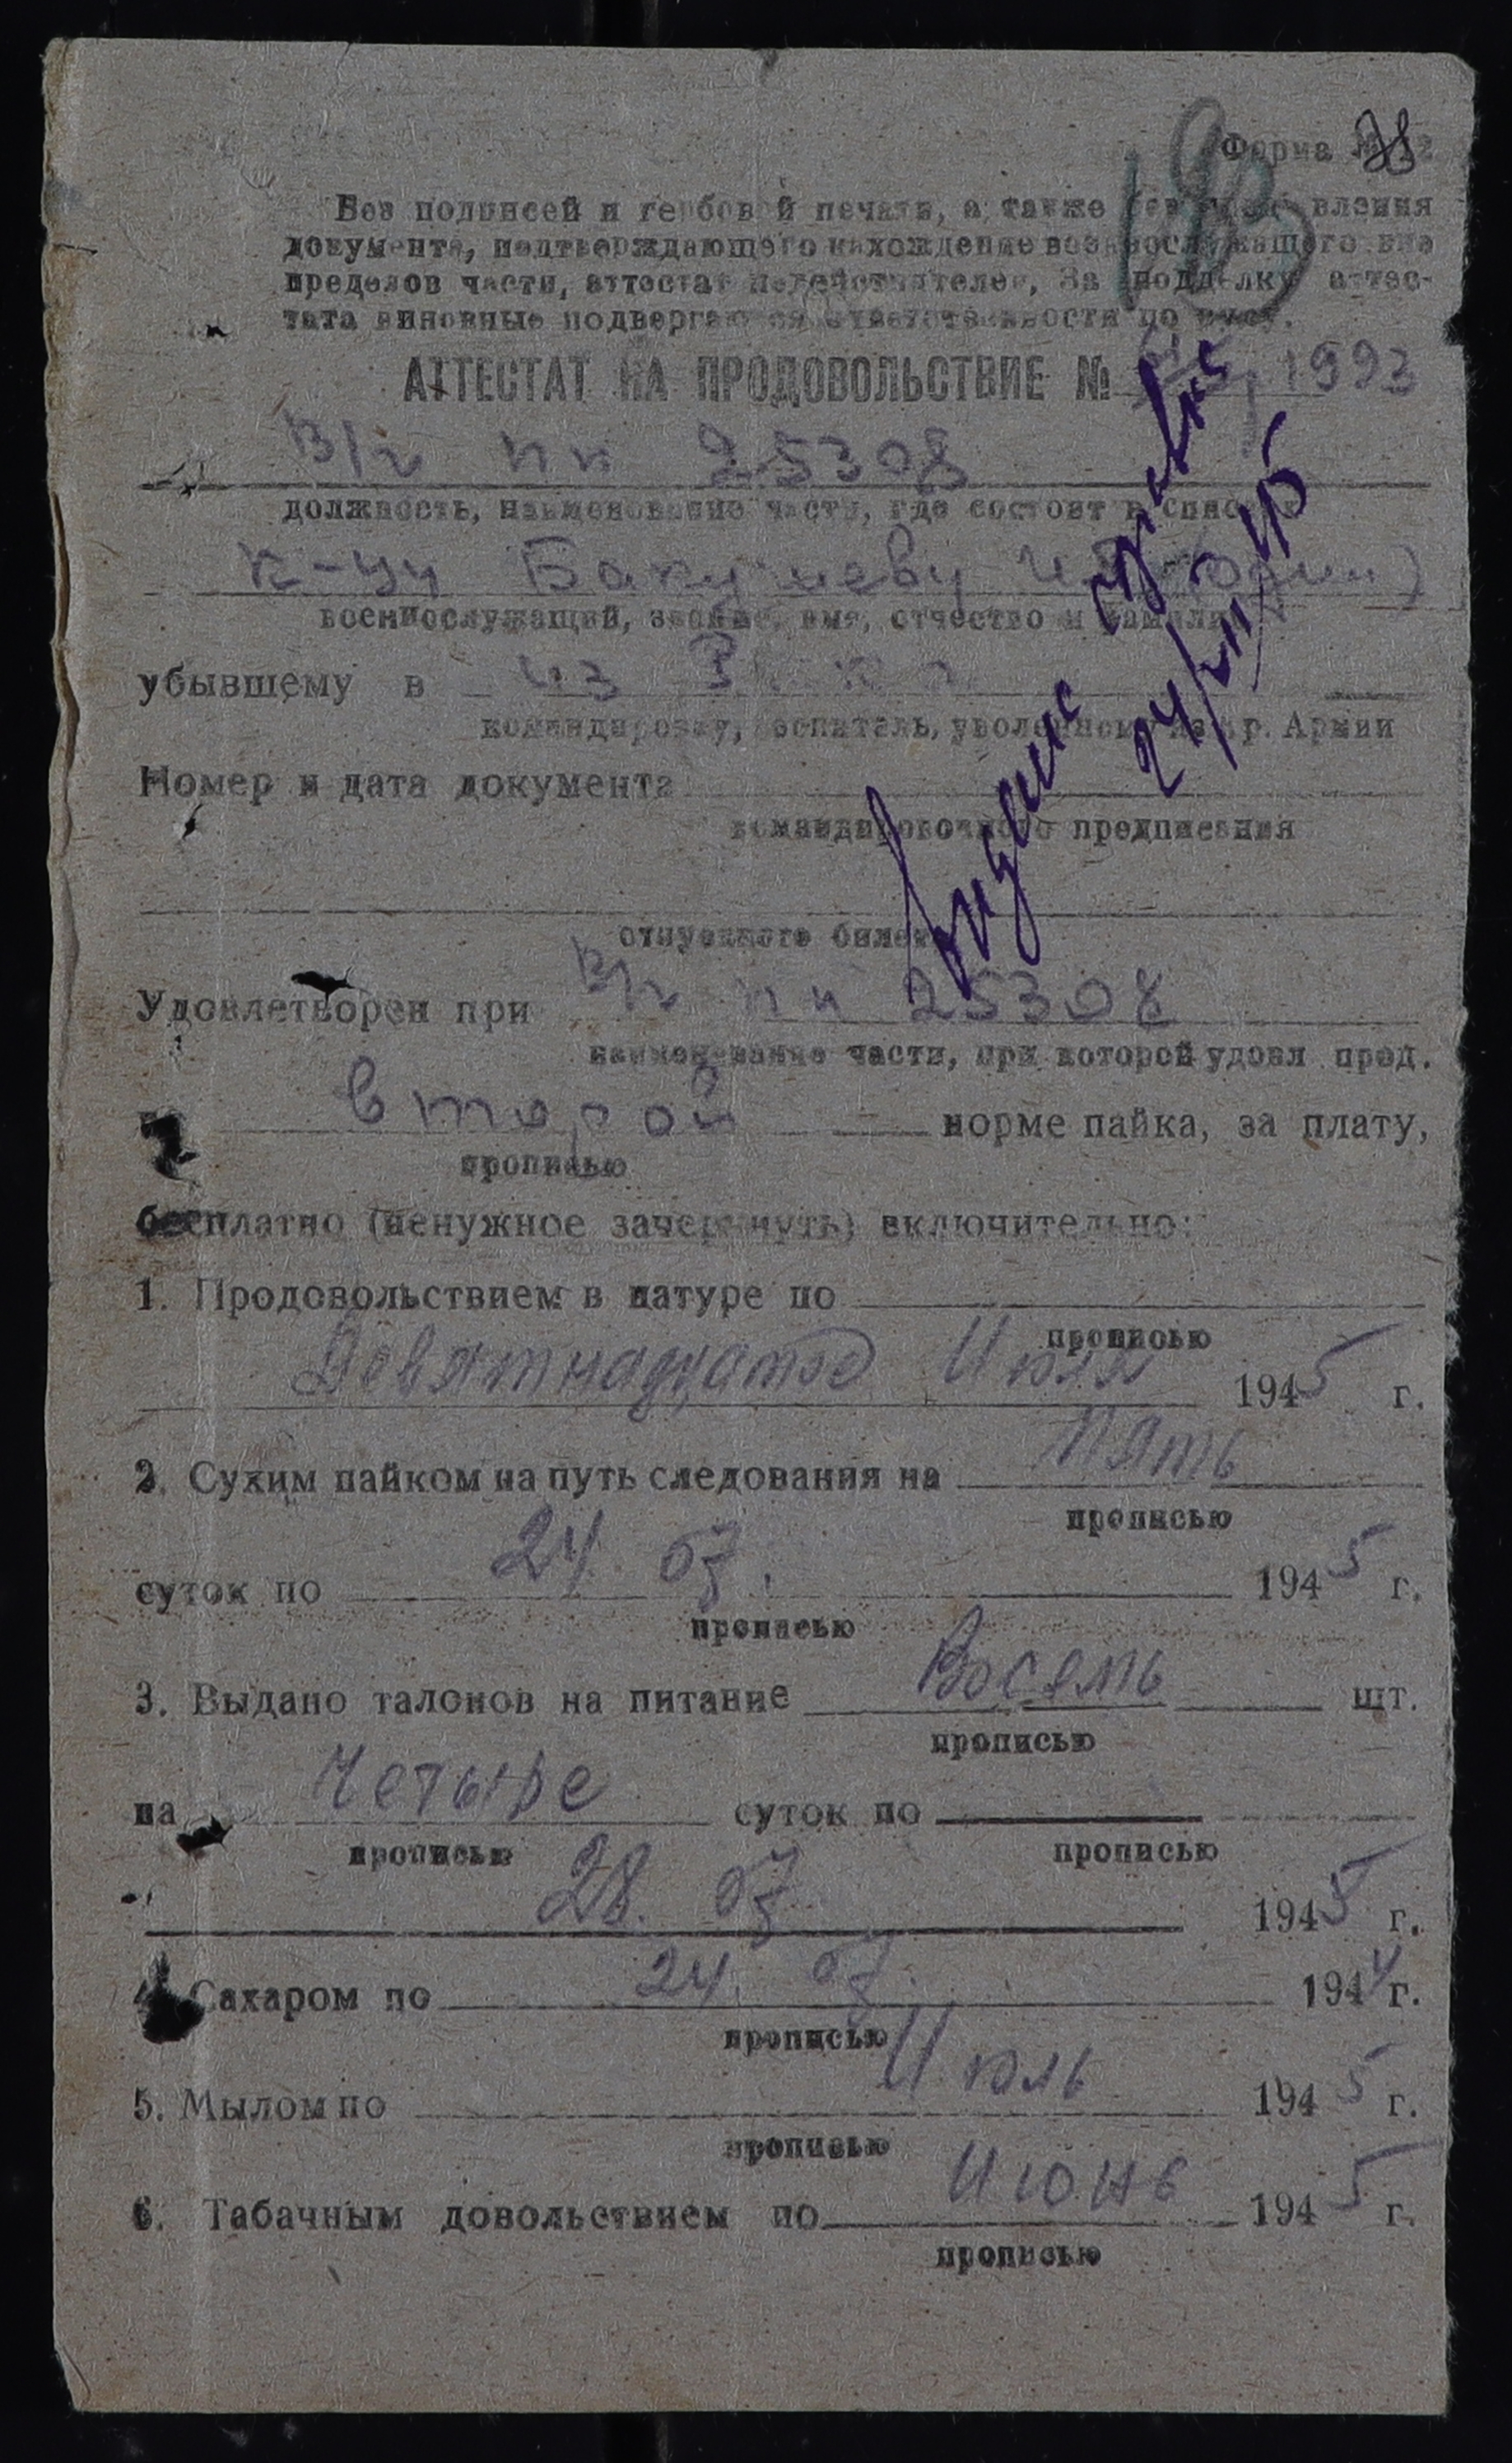 Форма № 2
193
Без подписей и гербовой печати, а также без предъявления
документа, подтверждающего нахождение военнослужащего вне
пределов части, аттестат недействителен, За подделку аттес-
тата виновные подвергаются ответственности по суду.
АТТЕСТАТ НА ПРОДОВОЛЬСТВИЕ № 1993
В/ч пп 25308
должность, наименование части, где состоит в списках
Бакушеву
военнослужащий, звание, имя, отчество и фамилия
убывшему в из
командировку, госпиталь, уволенному из Кр. Армии
Номер и дата документа
командировочного предписания
отпускного билета
Удовлетворен при В/ч пп 25308
наименование части, при которой удовл прод.
второй норме пайка, за плату,
прописью
бесплатно (ненужное зачеркнуть) включительно:
1. Продовольствием в натуре по
прописью
Девятнадцатое Июля 1945 г.
2. Сухим пайком на путь следования на Пять
прописью
суток по 24. 07. 1945 г.
прописью
3. Выдано талонов на питание Восемь шт.
прописью
на Четыре суток по
прописью прописью
28. 07 1945 г.
4. Сахаром по 24 07. 1944 г.
прописью
5. Мылом по Июль 1945 г.
прописью
6. Табачным довольствием по Июнь 1945 г.
прописью
Выдана справка
24/VII 45